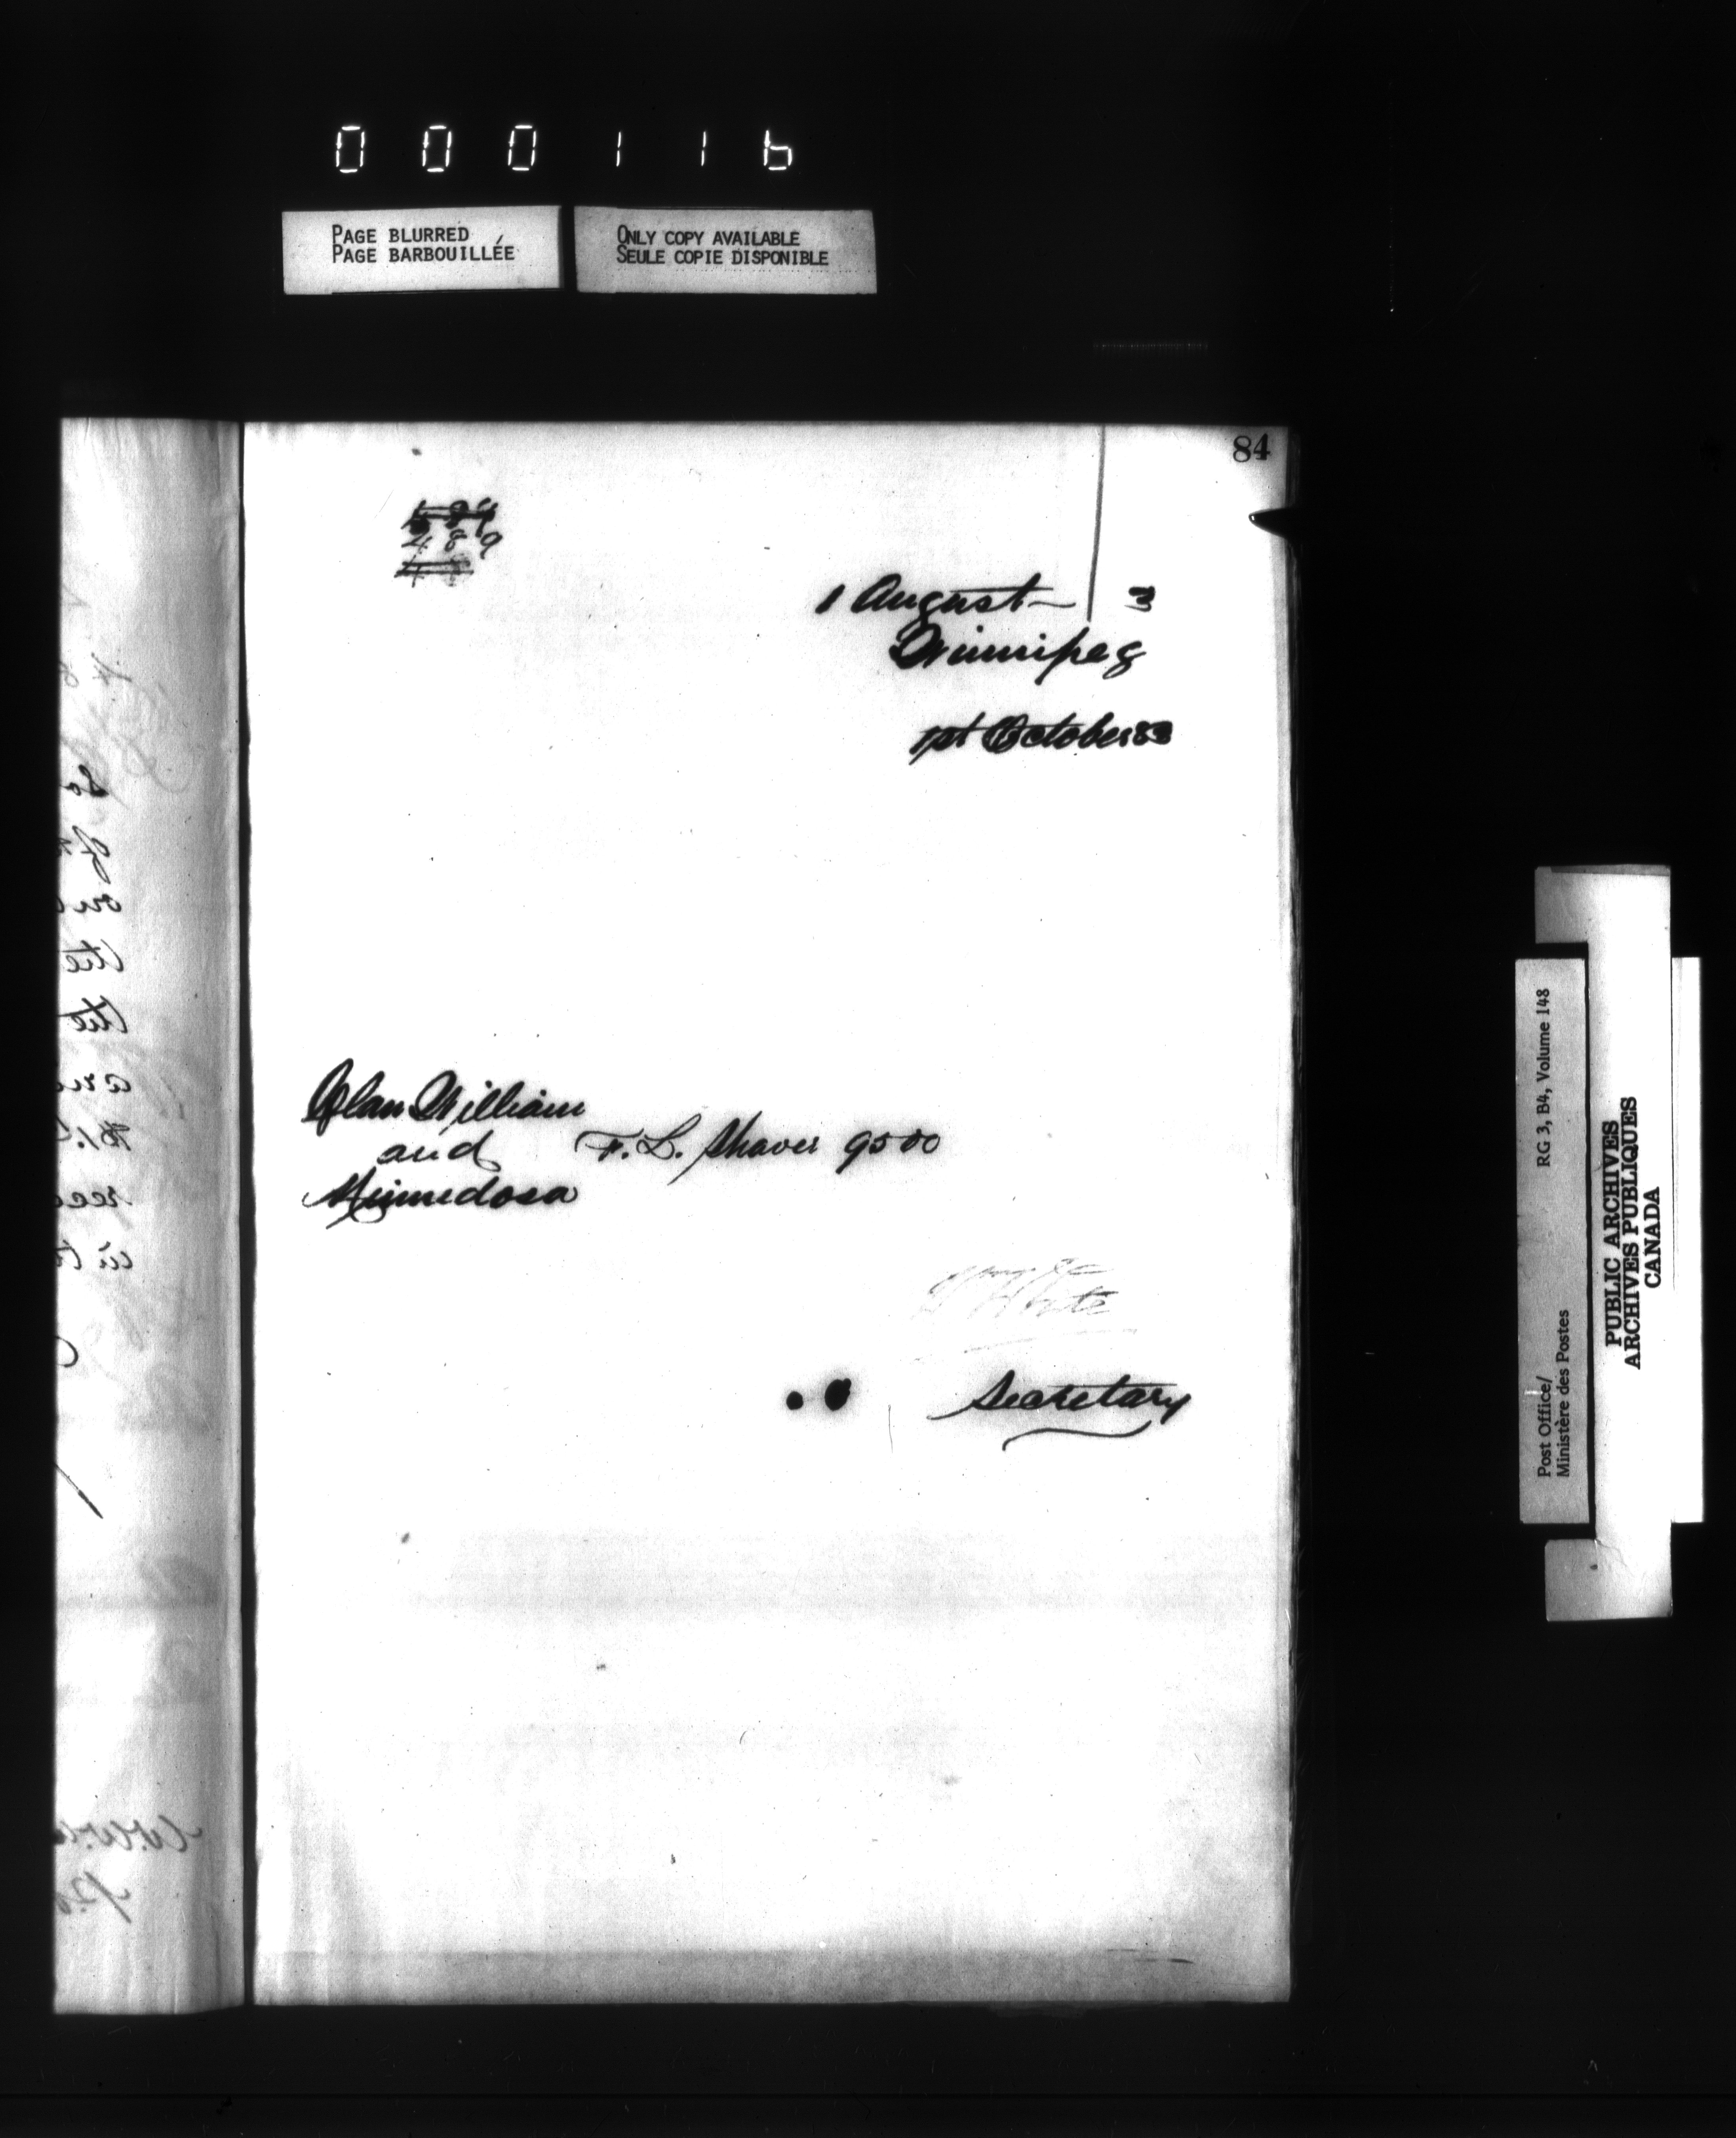 000116
PAGE BLURRED
PAGE BARBOUILLÉE
ONLY COPY AVAILABLE
SEULE COPIE DISPONIBLE
84
489
1 August 3
Winnipeg
1st October 83
Clan William
and F. L. Shaver 95 00
Minnedosa
White
Secretary
Post Office/ RG 3, B4, Volume 148
Ministère des Postes
PUBLIC ARCHIVES
ARCHIVES PUBLIQUES
CANADA